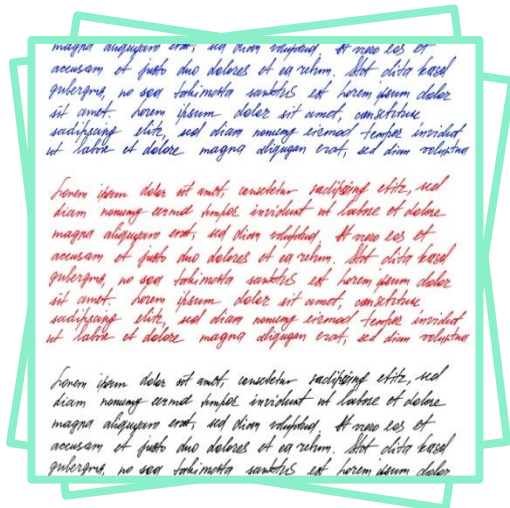 magna aliquyam erat, sed diam voluptua. At vero eos et
accusam et justo duo dolores et ea rebum. Stet clita kasd
gubergren, no sea takimata sanctus est Lorem ipsum dolor
sit amet. Lorem ipsum dolor sit amet, consetetur
sadipscing elitr, sed diam nonumy eirmod tempor invidunt
ut labore et dolore magna aliquyam erat, sed diam voluptua
Lorem ipsum dolor sit amet, consetetur sadipscing elitr, sed
diam nonumy eirmod tempor invidunt ut labore et dolore
magna aliquyam erat, sed diam voluptua. At vero eos et
accusam et justo duo dolores et ea rebum. Stet clita kasd
gubergren, no sea takimata sanctus est Lorem ipsum dolor
sit amet. Lorem ipsum dolor sit amet, consetetur
sadipscing elitr, sed diam nonumy eirmod tempor invidunt
ut labore et dolore magna aliquyam erat, sed diam voluptua
Lorem ipsum dolor sit amet, consetetur sadipscing elitr, sed
diam nonumy eirmod tempor invidunt ut labore et dolore
magna aliquyam erat, sed diam voluptua. At vero eos et
accusam et justo duo dolores et ea rebum. Stet clita kasd
gubergren, no sea takimata sanctus est Lorem ipsum dolor